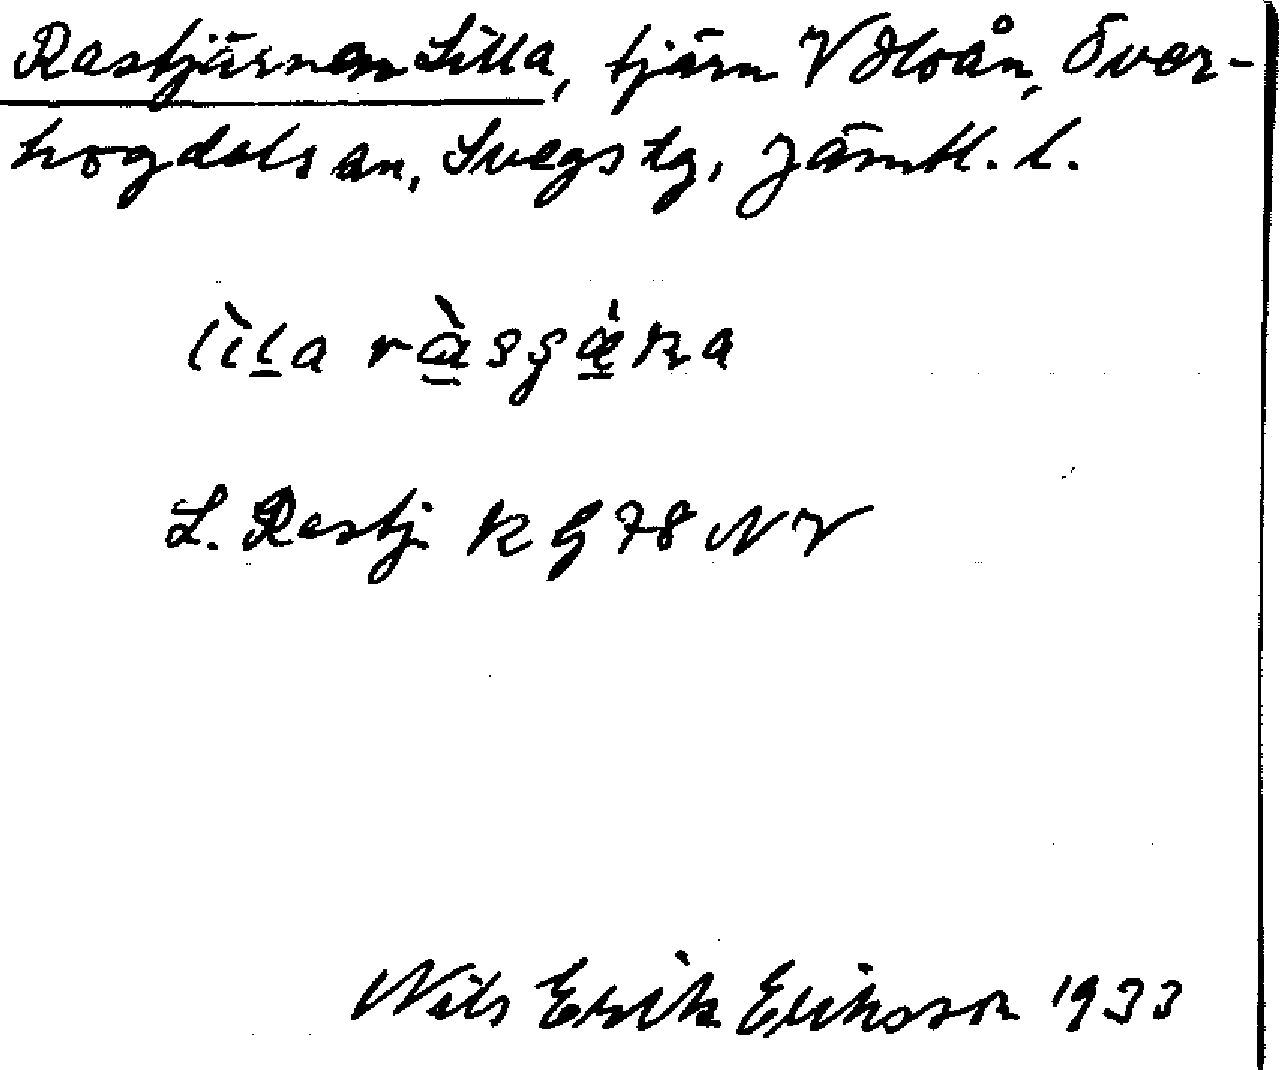 Rastjärnen Lilla, tjärn V Hoån, Över-
hogdals an, Svegs tg, Jämtl. l.
lìla ràsşæ̀ṇa
L. Rastj. K G 78 NV
Nils Erik Eriksson 1933